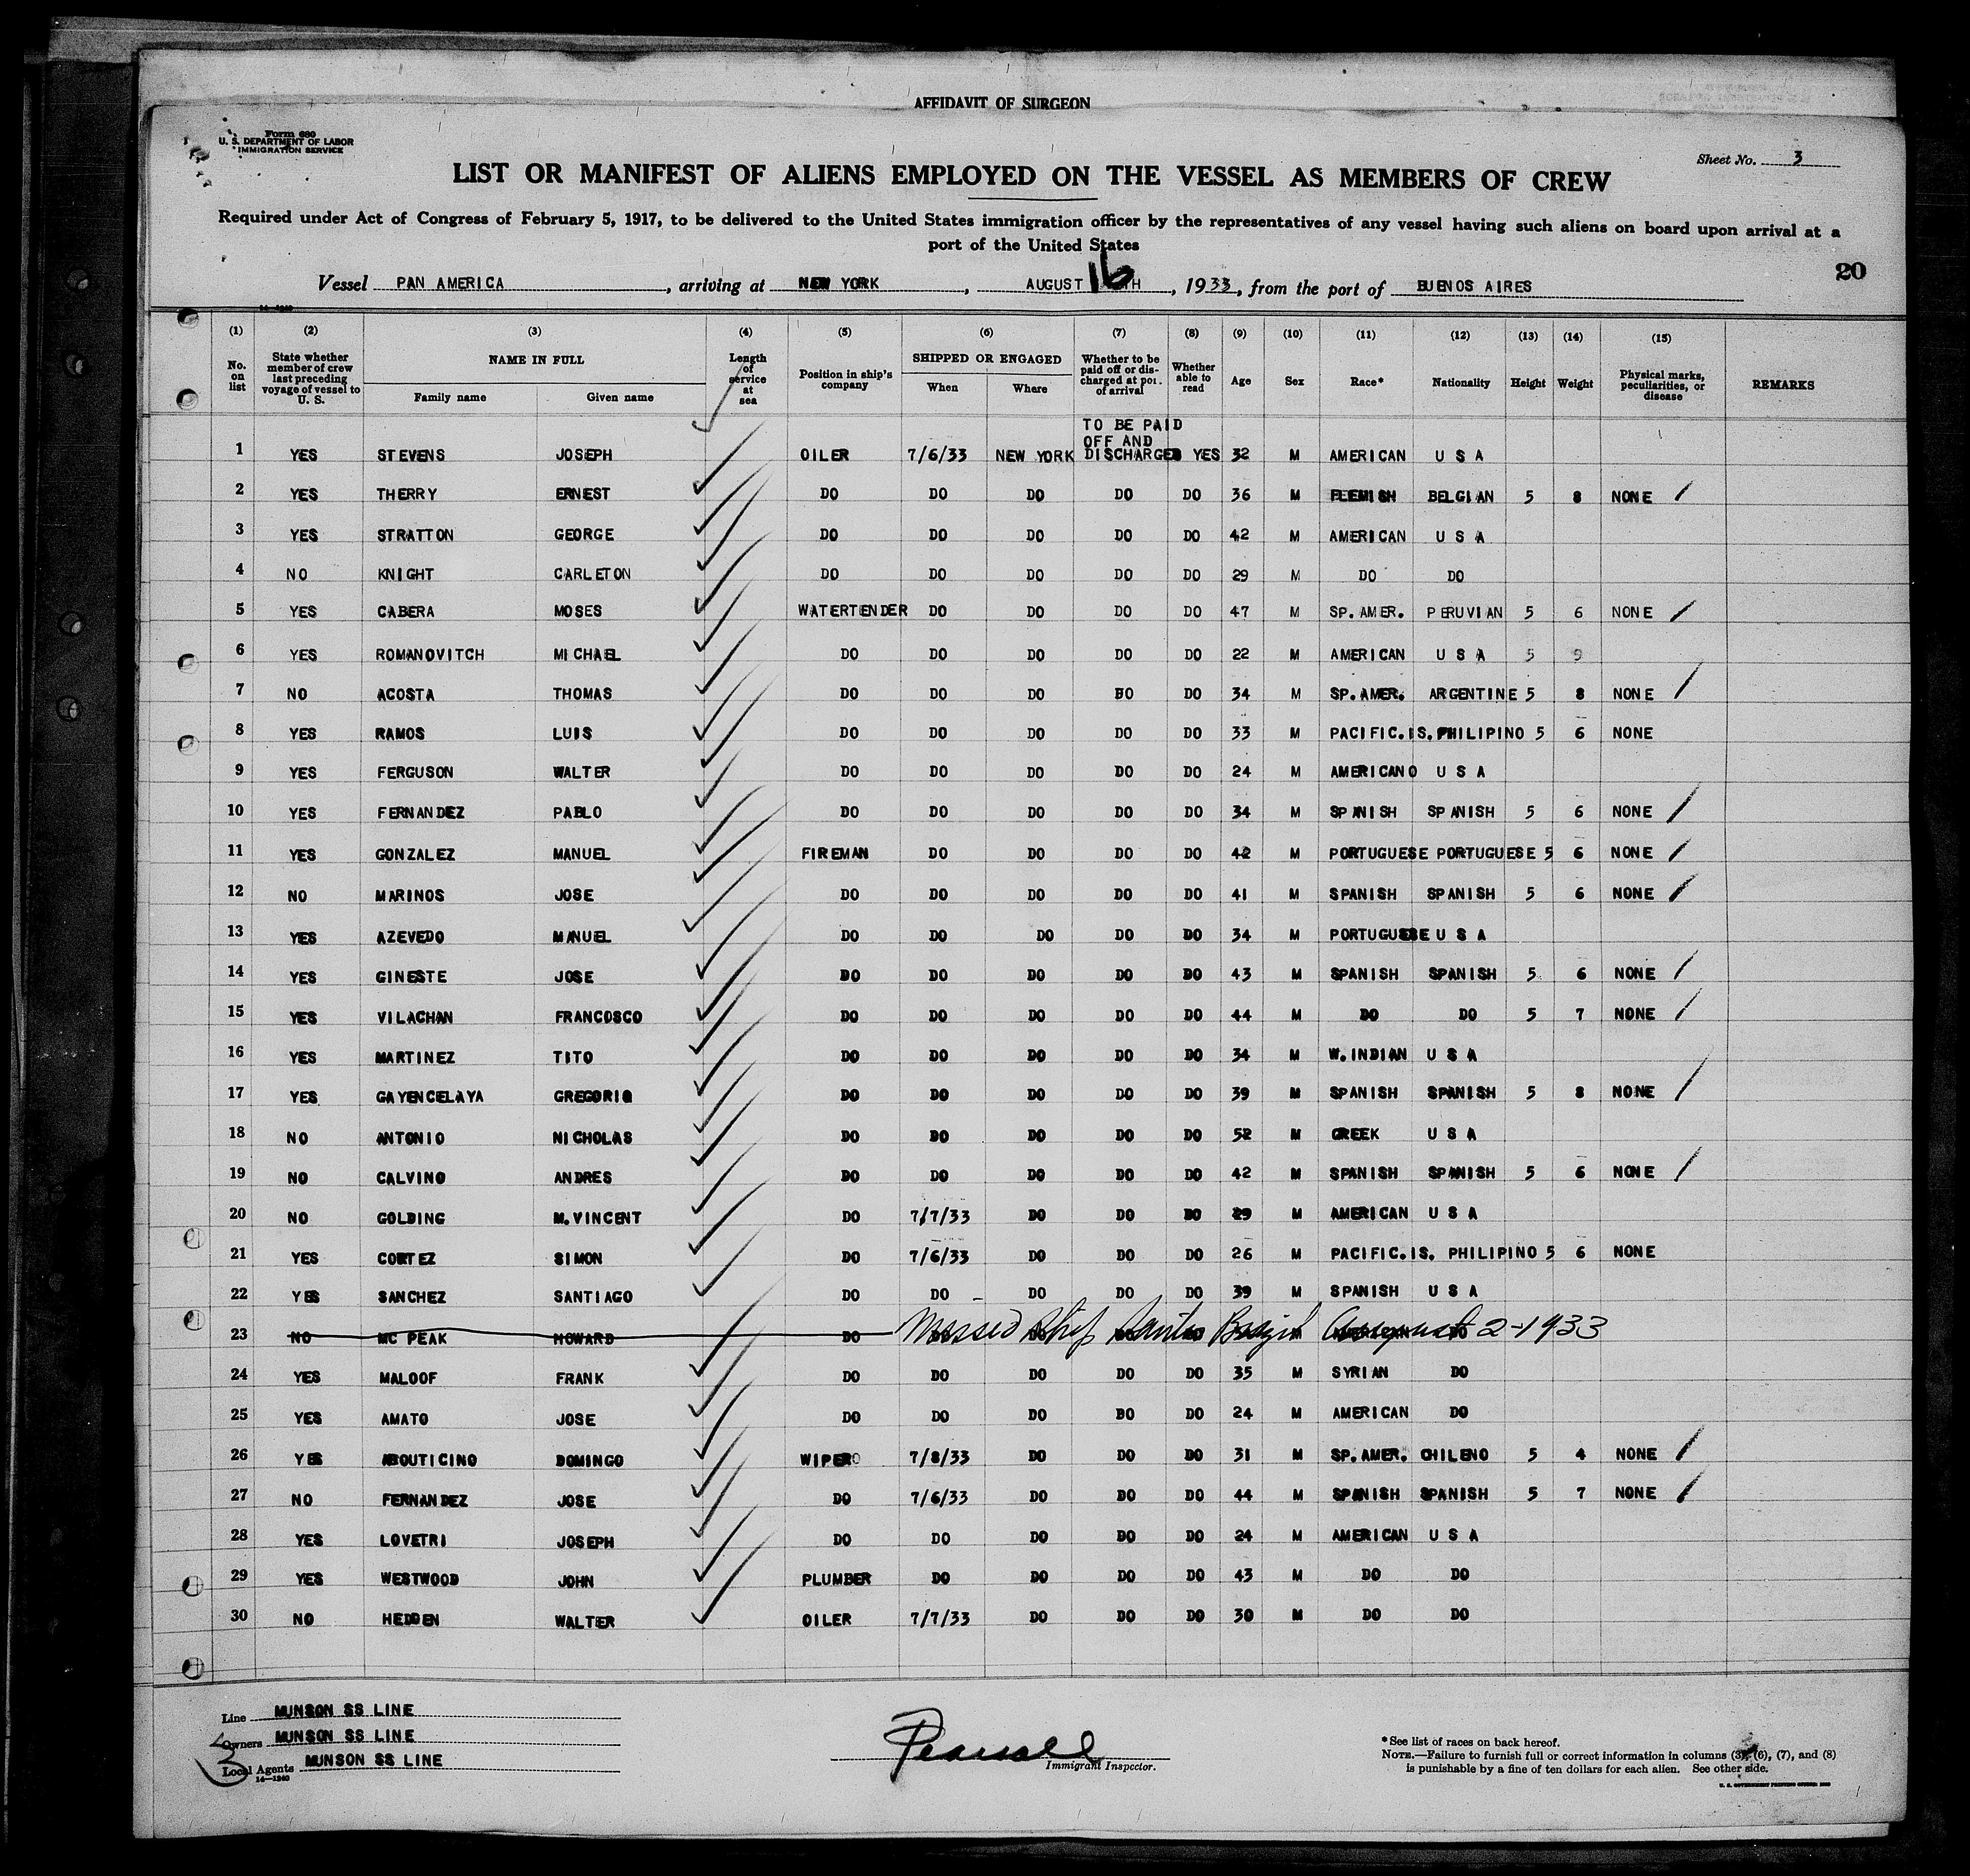 AFFIDAVIT OF SURGEON
Form 680
U. S. DEPARTMENT OF LABOR
IMMIGRATION SERVICE
Sheet No. 3
LIST OR MANIFEST OF ALIENS EMPLOYED ON THE VESSEL AS MEMBERS OF CREW
Required under Act of Congress of February 5, 1917, to be delivered to the United States immigration officer by the representatives of any vessel having such aliens on board upon arrival at a
port of the United States
20
Vessel PAN AMERICA, arriving at NEW YORK, AUGUST 16 TH, 1933, from the port of BUENOS AIRES
(1) (2) (3) (4) (5) (6) (7) (8) (9) (10) (11) (12) (13) (14) (15)
No. on list State whether member of crew last preceding voyage of vessel to U. S. NAME IN FULL Family name Given name Length of service at sea Position in ship's company SHIPPED OR ENGAGED When Where Whether to be paid off or discharged at port of arrival Whether able to read Age Sex Race* Nationality Height Weight Physical marks, peculiarities, or disease REMARKS
TO BE PAID
OFF AND
1 YES STEVENS JOSEPH OILER 7/6/33 NEW YORK DISCHARGED YES 32 M AMERICAN U S A
2 YES THERRY ERNEST DO DO DO DO DO 36 M FLEMISH BELGIAN 5 8 NONE
3 YES STRATTON GEORGE DO DO DO DO DO 42 M AMERICAN U S A
4 NO KNIGHT CARLETON DO DO DO DO DO 29 M DO DO
5 YES CABERA MOSES WATERTENDER DO DO DO DO 47 M SP. AMER. PERUVIAN 5 6 NONE
6 YES ROMANOVITCH MICHAEL DO DO DO DO DO 22 M AMERICAN U S A 5 9
7 NO ACOSTA THOMAS DO DO DO DO DO 34 M SP. AMER. ARGENTINE 5 8 NONE
8 YES RAMOS LUIS DO DO DO DO DO 33 M PACIFIC.IS. PHILIPINO 5 6 NONE
9 YES FERGUSON WALTER DO DO DO DO DO 24 M AMERICANO U S A
10 YES FERNANDEZ PABLO DO DO DO DO DO 34 M SPANISH SPANISH 5 6 NONE
11 YES GONZALEZ MANUEL FIREMAN DO DO DO DO 42 M PORTUGUESE PORTUGUESE 5 6 NONE
12 NO MARINOS JOSE DO DO DO DO DO 41 M SPANISH SPANISH 5 6 NONE
13 YES AZEVEDO MANUEL DO DO DO DO DO 34 M PORTUGUESE U S A
14 YES GINESTE JOSE DO DO DO DO DO 43 M SPANISH SPANISH 5 6 NONE
15 YES VILACHAN FRANCOSCO DO DO DO DO DO 44 M DO DO 5 7 NONE
16 YES MARTINEZ TITO DO DO DO DO DO 34 M W. INDIAN U S A
17 YES GAYENCELAYA GREGORIO DO DO DO DO DO 39 M SPANISH SPANISH 5 8 NONE
18 NO ANTONIO NICHOLAS DO DO DO DO DO 52 M GREEK U S A
19 NO CALVINO ANDRES DO DO DO DO DO 42 M SPANISH SPANISH 5 6 NONE
20 NO GOLDING M. VINCENT DO 7/7/33 DO DO DO 29 M AMERICAN U S A
21 YES CORTEZ SIMON DO 7/6/33 DO DO DO 26 M PACIFIC.IS. PHILIPINO 5 6 NONE
22 YES SANCHEZ SANTIAGO DO DO DO DO DO 39 M SPANISH U S A
23 NO MC PEAK HOWARD DO Missed Ship Santos Brazil August 2-1933
24 YES MALOOF FRANK DO DO DO DO DO 35 M SYRIAN DO
25 YES AMATO JOSE DO DO DO DO DO 24 M AMERICAN DO
26 YES ABOUTICINO DOMINGO WIPER 7/8/33 DO DO DO 31 M SP. AMER. CHILENO 5 4 NONE
27 NO FERNANDEZ JOSE DO 7/6/33 DO DO DO 44 M SPANISH SPANISH 5 7 NONE
28 YES LOVETRI JOSEPH DO DO DO DO DO 24 M AMERICAN U S A
29 YES WESTWOOD JOHN PLUMBER DO DO DO DO 43 M DO DO
30 NO HEDDEN WALTER OILER 7/7/33 DO DO DO 30 M DO DO
Line MUNSON SS LINE
Owners MUNSON SS LINE
Local Agents MUNSON SS LINE
14—1240
Immigrant Inspector.
*See list of races on back hereof.
NOTE.—Failure to furnish full or correct information in columns (3), (6), (7), and (8)
is punishable by a fine of ten dollars for each alien. See other side.
U. S. GOVERNMENT PRINTING OFFICE